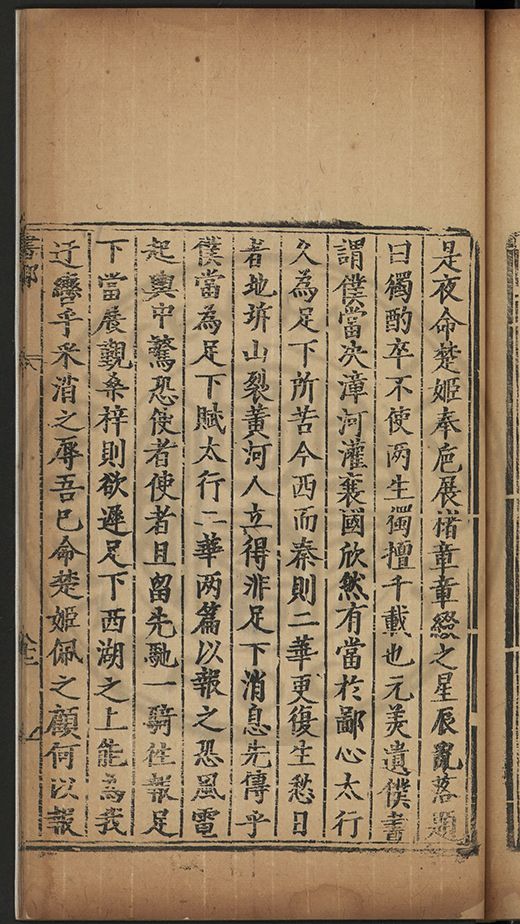 是夜命楚姬奉巵展楮章章綴之星辰亂落題
曰獨酌卒不使兩生獨擅千載也元美遺僕書
謂僕當決漳河灌襄國欣然有當於鄙心太行
久為足下所苦今西而秦則二華更復生愁日
者地坼山裂黃河人立得非足下消息先傳乎
僕當為足下賦太行二華两篇以報之恐風雷
起輿中驚恐使者使者且留先馳一騎徃報足
下當展觀桑梓則欲遲足下西湖之上能為我
迂轡乎米渻之辱吾巳命楚姬佩之顧何以報